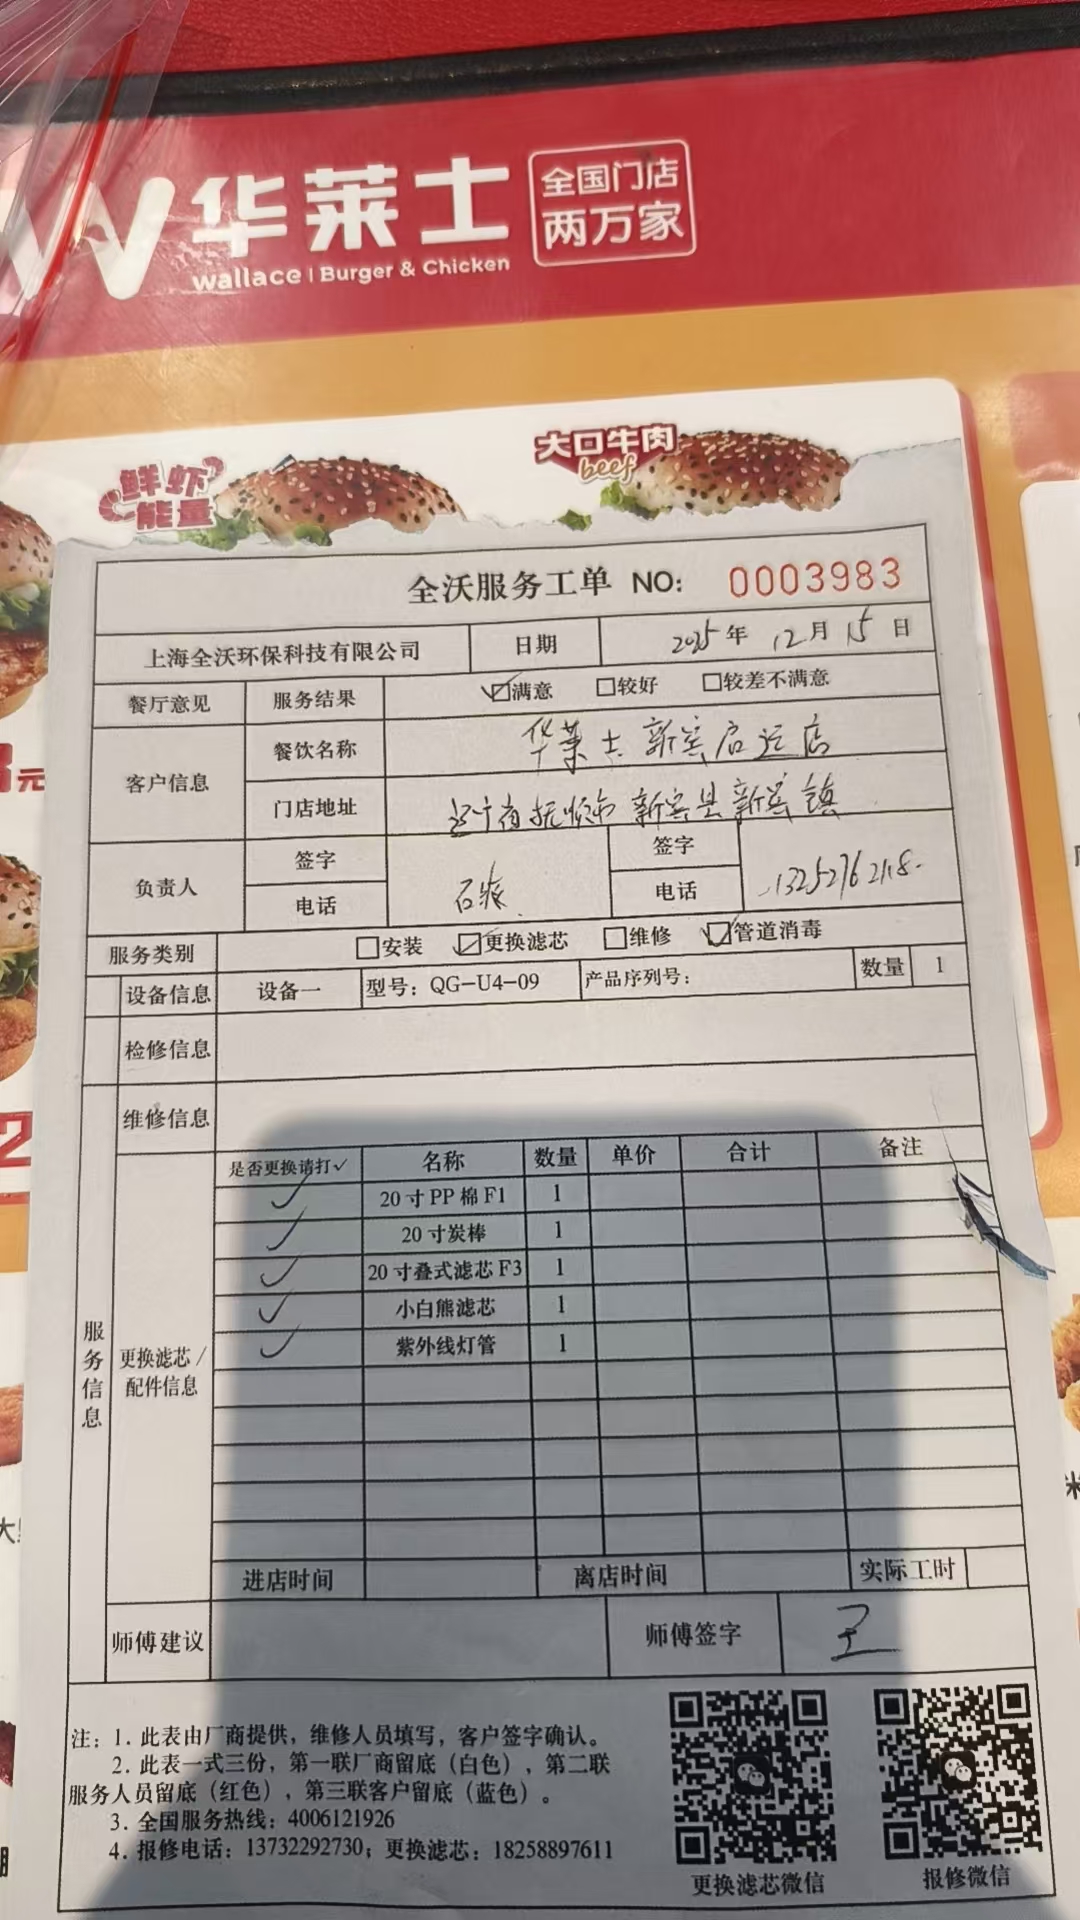 华莱士
全国门店
两万家
wallace | Burger & Chicken
鲜虾
能量
大口牛肉
beef
全沃服务工单 NO: 0003983
上海全沃环保科技有限公司 日期 2025年 12月 15日
餐厅意见 服务结果 ☑满意 □较好 □较差不满意
客户信息 餐饮名称 华莱士新宾启运店
门店地址 辽宁省抚顺市新宾县新宾镇
负责人 签字 签字
电话 石 电话 13252762118
服务类别 □安装 ☑更换滤芯 □维修 ☑管道消毒
设备信息 设备一 型号: QG-U4-09 产品序列号: 数量 1
检修信息
维修信息
服务信息
更换滤芯/
配件信息
是否更换请打✓ 名称 数量 单价 合计 备注
✓ 20寸PP棉F1 1
✓ 20寸炭棒 1
✓ 20寸叠式滤芯F3 1
✓ 小白熊滤芯 1
✓ 紫外线灯管 1
进店时间 离店时间 实际工时
师傅建议 师傅签字 王
注: 1. 此表由厂商提供，维修人员填写，客户签字确认。
2. 此表一式三份，第一联厂商留底（白色），第二联
服务人员留底（红色），第三联客户留底（蓝色）。
3. 全国服务热线: 4006121926
4. 报修电话: 13732292730; 更换滤芯: 18258897611
更换滤芯微信
报修微信
元
2
米